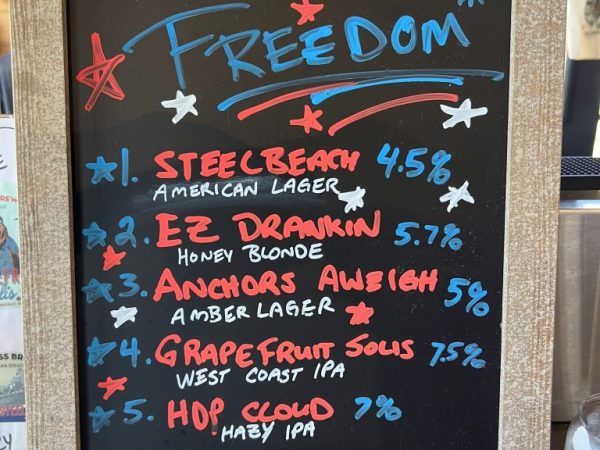 FREEDOM
1. STEEL BEACH 4.5%
AMERICAN LAGER
2. EZ DRANKIN 5.7%
HONEY BLONDE
3. ANCHORS AWEIGH 5%
AMBER LAGER
4. GRAPEFRUIT SOLIS 7.5%
WEST COAST IPA
5. HOP CLOUD 7%
HAZY IPA